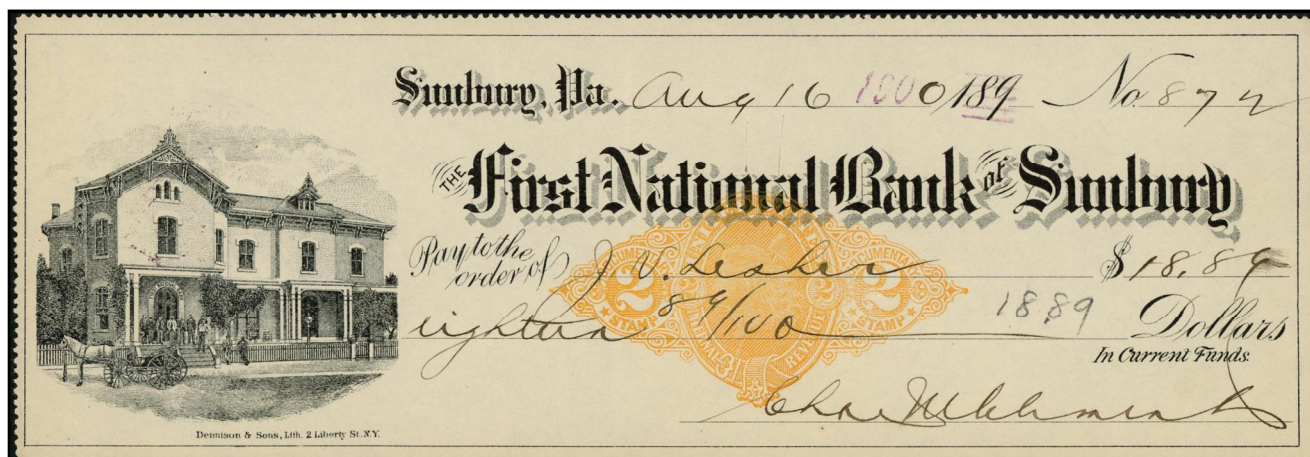 Sunbury, Pa. Aug 16 1900 189 No. 872
THE First National Bank of Sunbury
Pay to the order of J. V. Lesher $18.89
eighteen 89/100 18.89 Dollars
In Current Funds.
Chas
DOCUMENTARY
2 2 2 2
STAMP STAMP
Dennison & Sons, Lith. 2 Liberty St. N.Y.